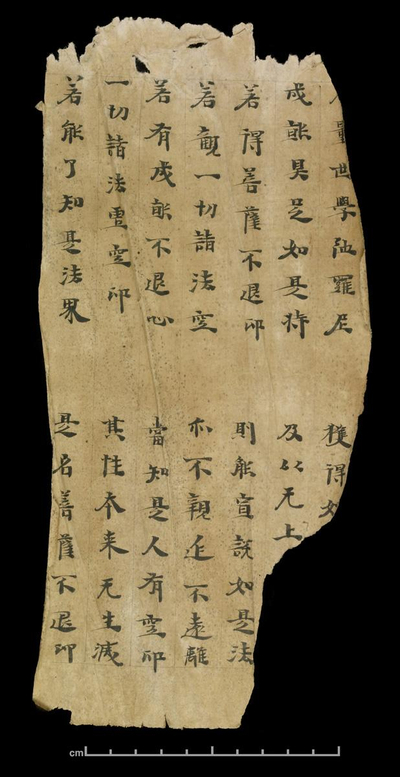 量世學陁羅尼 獲得如
成就具足如是持 及以无上
若得菩薩不退印 則能宣說如是法
若觀一切諸法空 亦不親近不遠離
若有成就不退心 當知是人有空印
一切諸法虛空印 其性本来无生滅
若能了知是法界 是名菩薩不退印
cm